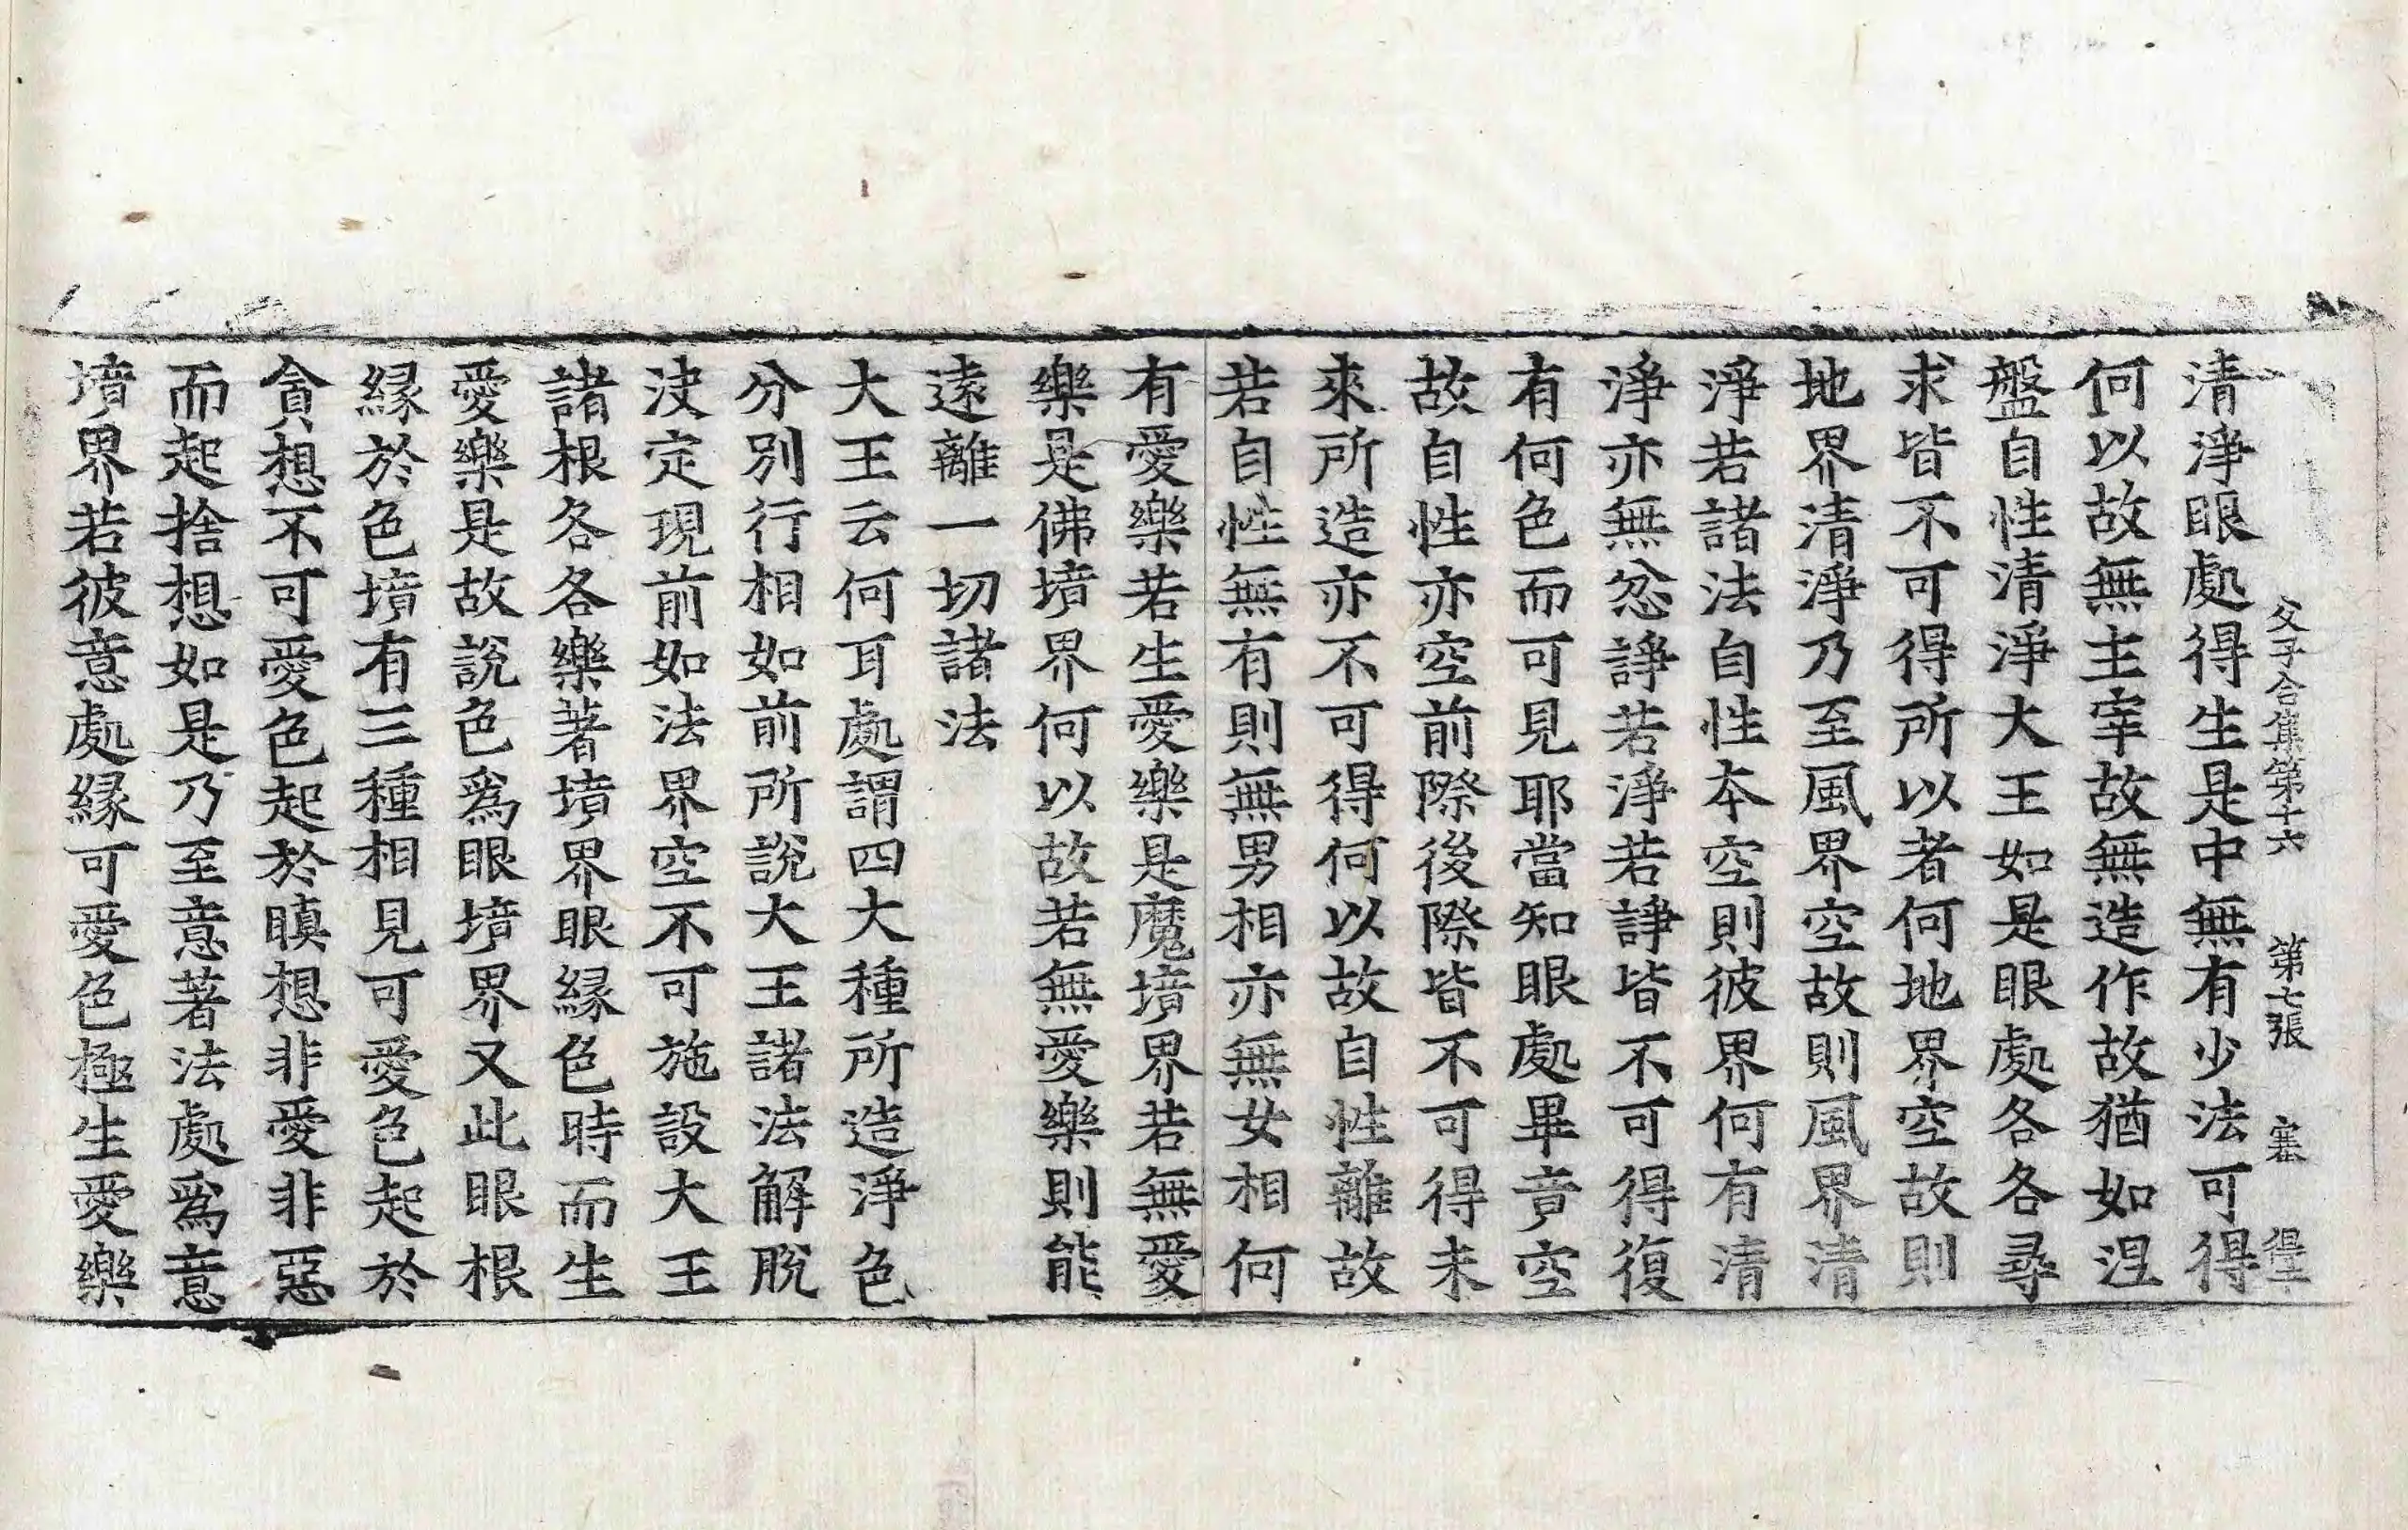 父子合集第十六　第七張　塞　得主
清淨眼處得生是中無有少法可得
何以故無主宰故無造作故猶如涅
盤自性清淨大王如是眼處各各尋
求皆不可得所以者何地界空故則
地界清淨乃至風界空故則風界清
淨若諸法自性本空則彼界何有清
淨亦無忿諍若淨若諍皆不可得復
有何色而可見耶當知眼處畢竟空
故自性亦空前際後際皆不可得未
來所造亦不可得何以故自性離故
若自性無有則無男相亦無女相何
有愛樂若生愛樂是魔境界若無愛
樂是佛境界何以故若無愛樂則能
遠離一切諸法
大王云何耳處謂四大種所造淨色
分別行相如前所說大王諸法解脫
決定現前如法界空不可施設大王
諸根各各樂著境界眼緣色時而生
愛樂是故說色爲眼境界又此眼根
緣於色境有三種相見可愛色起於
貪想不可愛色起於瞋想非愛非惡
而起捨想如是乃至意著法處爲意
境界若彼意處緣可愛色極生愛樂